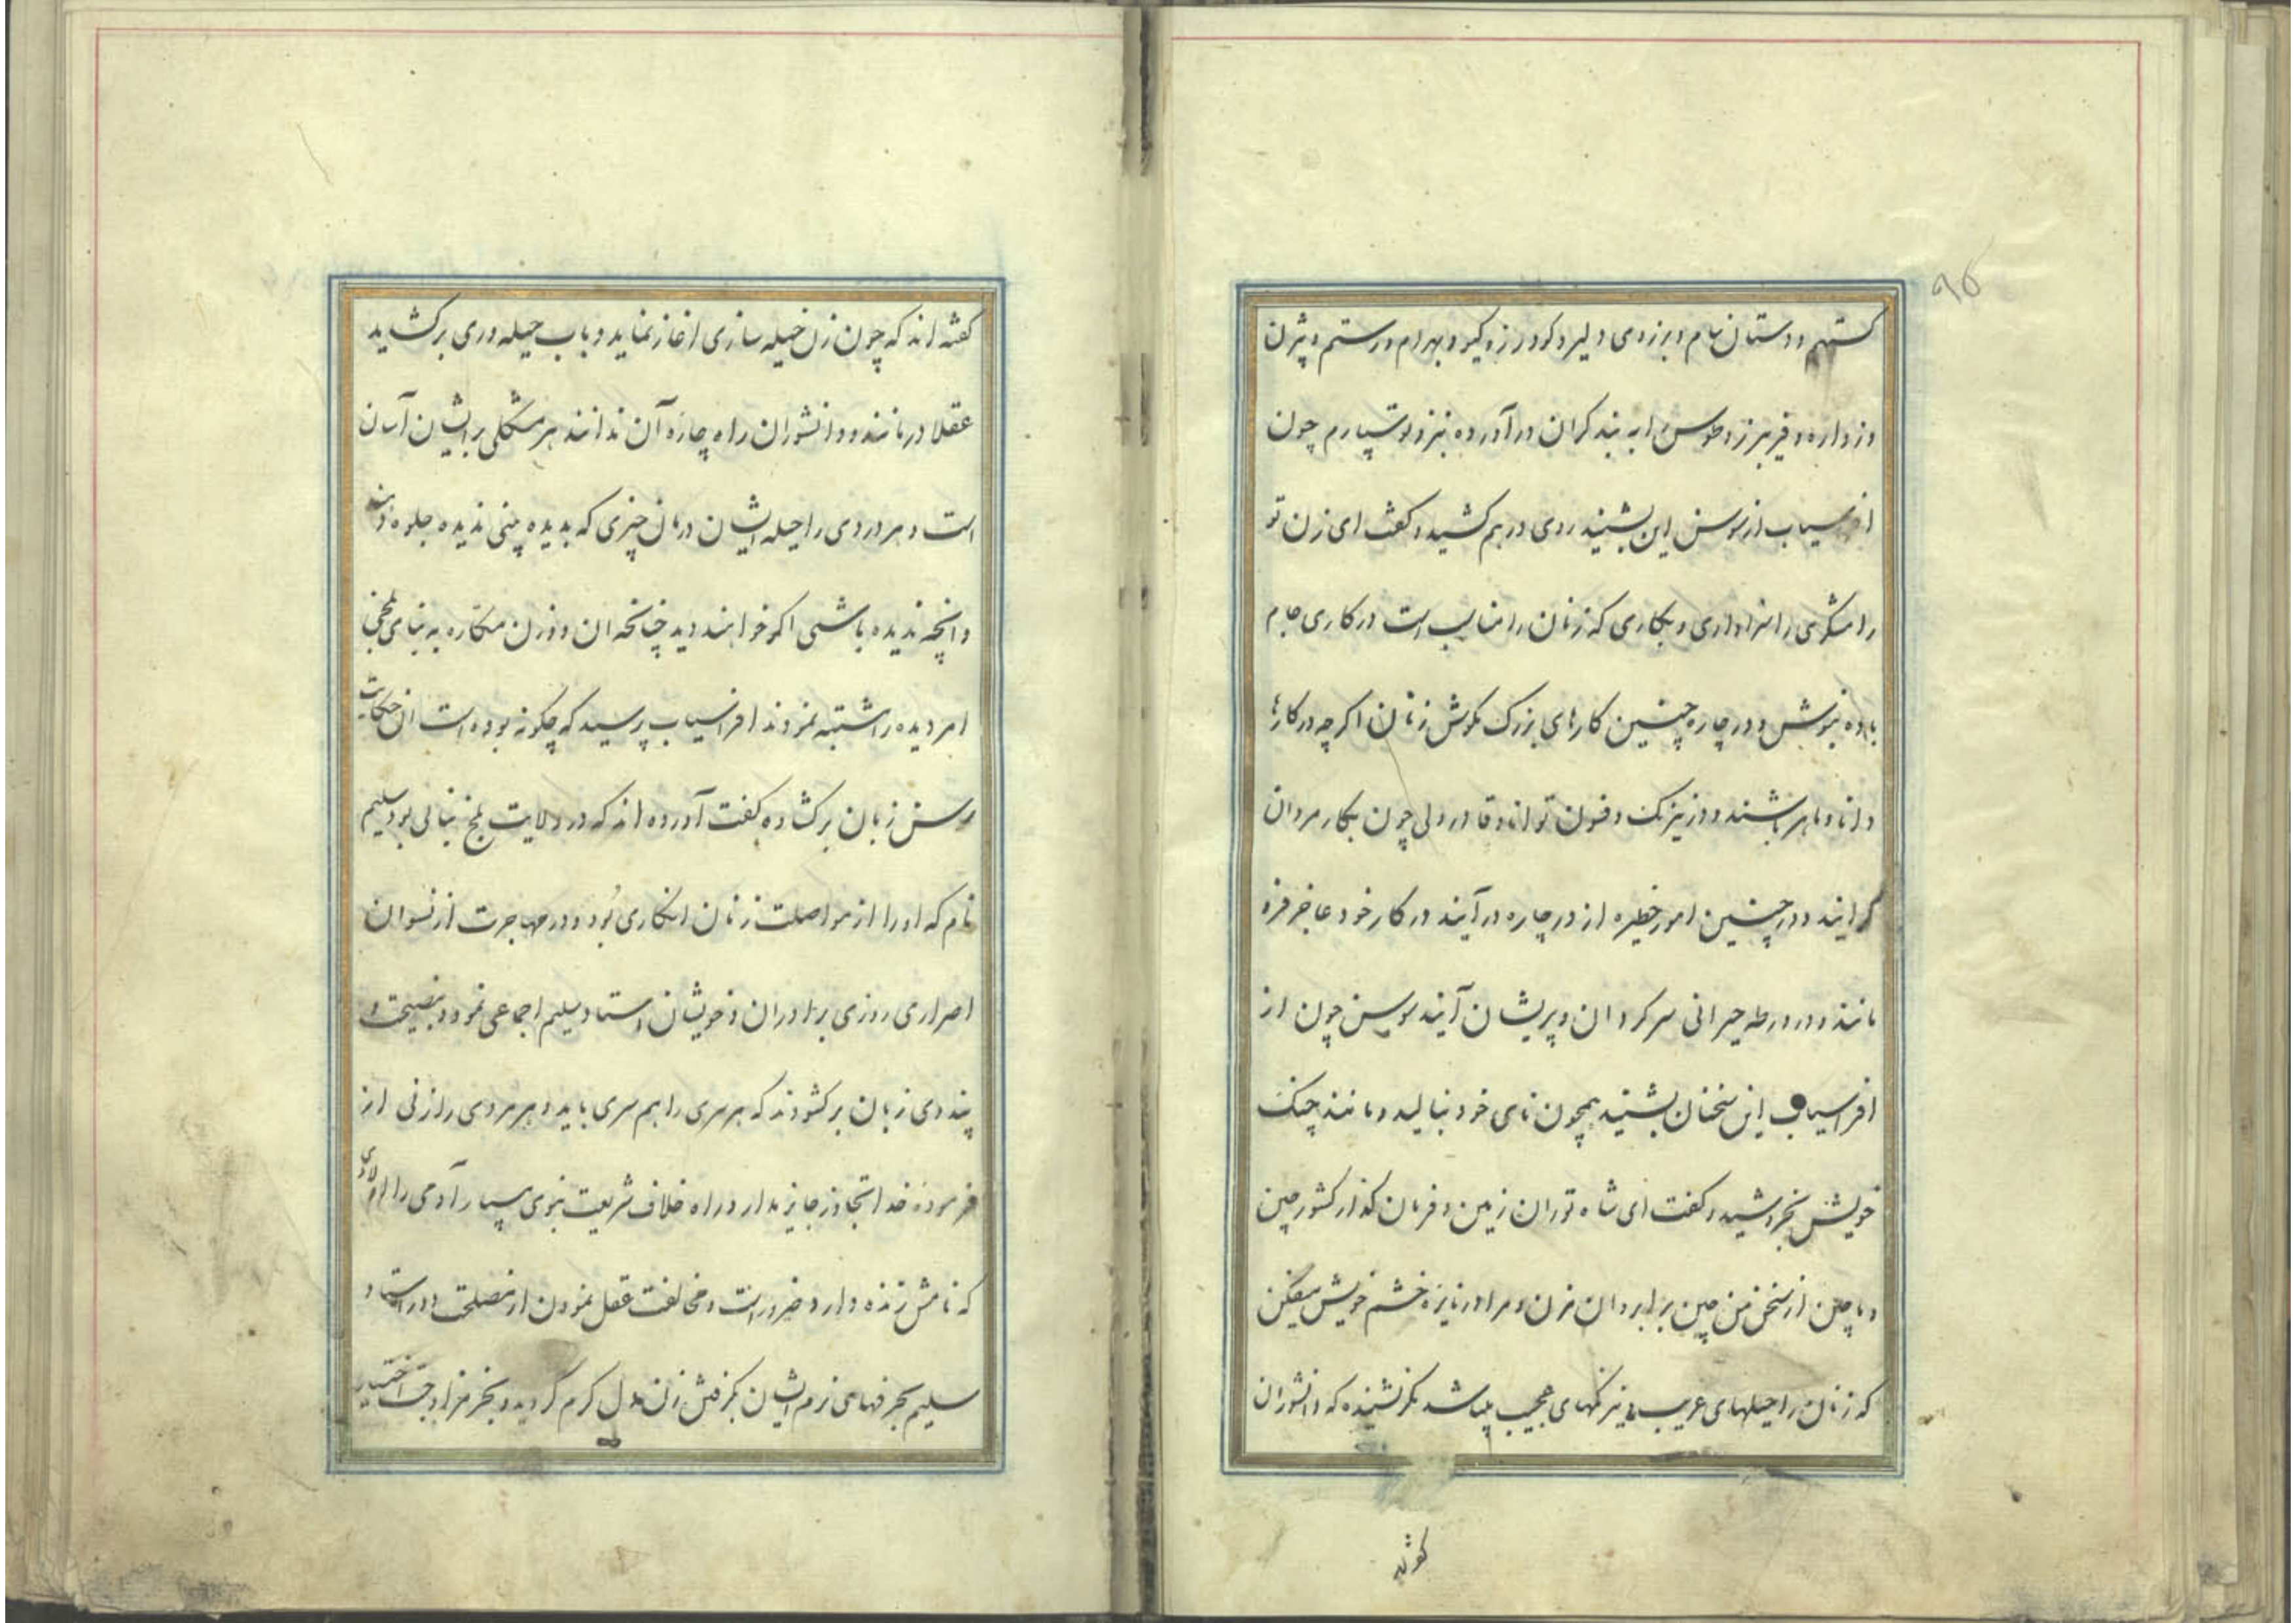 ٩۵
کستهم و دستان سام و برزوی دلیر و کودرز و کیو و بهرام و رستم و بیژن
و زواره و فریبرز و طوس را به بند کران درآورده بنزد تو سپارم چون
افراسیاب از سوسن این بشنید روی در هم کشید و کفت ای زن تو
رامشکری را سزاواری و بکاری که زنان را مناسب است در کاری جام
باده بنوش و در چاره چنین کارهای بزرک مکوش زنان اکر چه در کارها
دانا و ماهر باشند و در نیرنک و فسون توانا و قادر ولی چون بکار مردان
کرایند و در چنین امور خطیره از در چاره درآیند در کار خود عاجز فرو
مانند و در ورطه حیرانی سرکردان و پریشان آیند سوسن چون از
افراسیاب این سخنان بشنید همچون نای خود بنالید و مانند چنک
خویش بخروشید و کفت ای شاه توران زمین و فرمان کذار کشور چین
و ماچین از سخن من چین بر ابروان مزن و مرا در نایره خشم خویش میفکن
که زنان را حیلهای غریب و نیرنکهای عجیب میباشد مکر نشنیده که دانشوران
کفته
کفته اند که چون زن حیله سازی اغاز نماید و باب حیله وری برکشاید
عقلا درمانند و دانشوران راه چاره آن ندانند هر مشکلی بر ایشان آسان
است و هر دردی را حیله ایشان درمان چیزی که بدیده بینی ندیده جلوه دهند
و انچه ندیده باشی اکر خواهند دید چنانچه ان دو زن مکاره به بنای بلخی
امر دیده را مشتبه نمودند افراسیاب پرسید که چکونه بوده است ان حکایت
سوسن زبان برکشاده کفت آورده اند که در ولایت بلخ بنائی بود سلیم
نام که او را از مواصلت زنان انکاری بود و در مهاجرت از نسوان
اصراری روزی برادران و خویشان استاد سلیم اجماعی نمود و بنصیحت و
پند وی زبان برکشودند که هر سری را هم سری باید و هر مردی را زنی از
فرموده خدا تجاوز جایز مدار و راه خلاف شریعت نبوی مسپار آدمی را اولادی
که نامش زنده دارد ضرور است و مخالفت عقل نمودن از مصلحت دور استاد
سلیم بحرفهای نرم ایشان بکرفتن زن دل کرم کردید و بخر مزاوجت اختیار